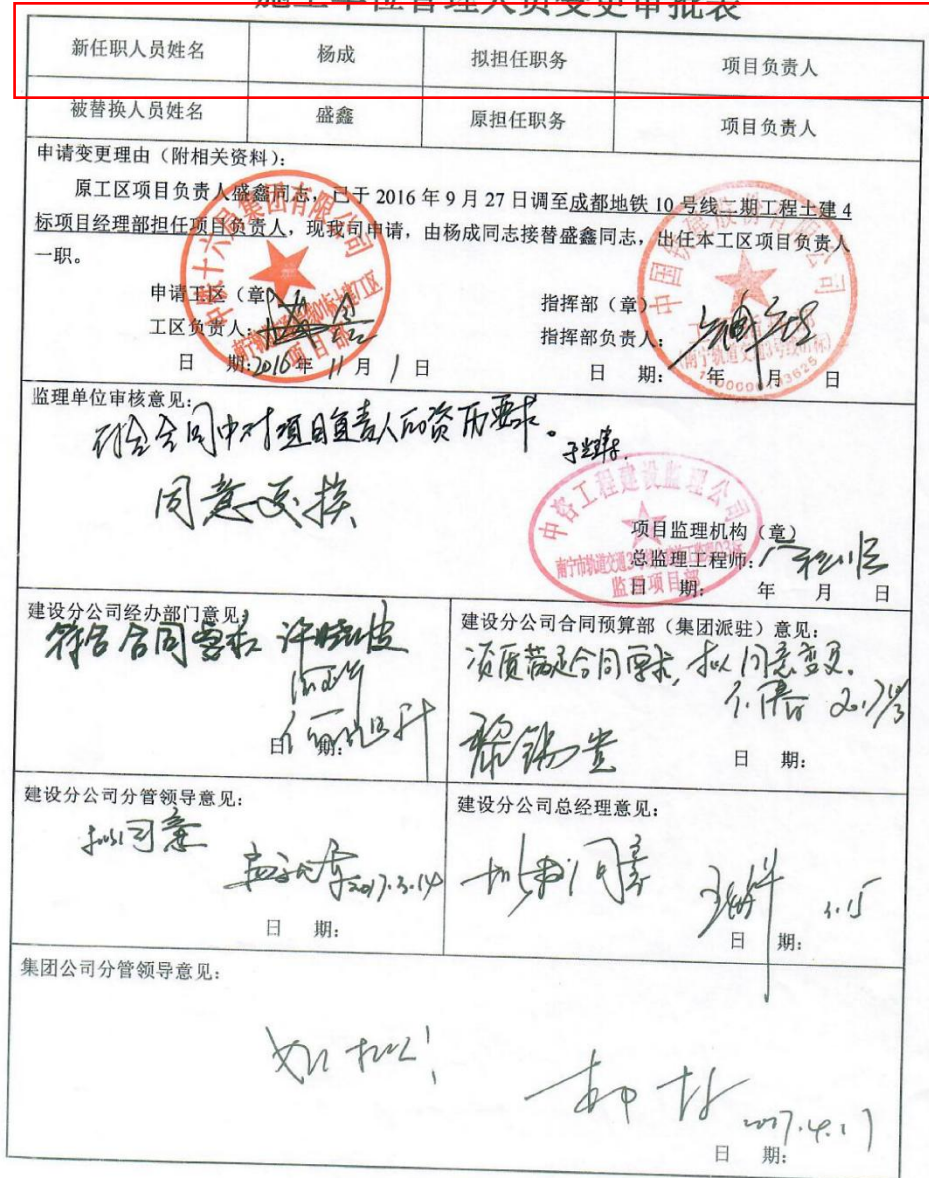 施工单位管理人员变更审批表
新任职人员姓名 杨成 拟担任职务 项目负责人
被替换人员姓名 盛鑫 原担任职务 项目负责人
申请变更理由（附相关资料）：
原工区项目负责人盛鑫同志，已于 2016 年 9 月 27 日调至成都地铁 10 号线二期工程土建 4
标项目经理部担任项目负责人，现我司申请，由杨成同志接替盛鑫同志，出任本工区项目负责人
一职。
中铁十六局集团有限公司
项目部
申请工区（章）
工区负责人：
日 期：2016 年 11 月 1 日
中国铁建股份有限公司
指挥部（章）
指挥部负责人：
日 期： 年 月 日
监理单位审核意见：
符合合同中对项目负责人的资历要求。
同意更换
中咨工程建设监理公司
监理项目部
项目监理机构（章）
总监理工程师：
日 期： 年 月 日
建设分公司经办部门意见：
符合合同要求 许晓波
日 期：
建设分公司合同预算部（集团派驻）意见：
资质满足合同要求，拟同意变更。
日 期：
建设分公司分管领导意见：
拟同意
2017.3.14
日 期：
建设分公司总经理意见：
同意
3.15
日 期：
集团公司分管领导意见：
2017.4.17
日 期：